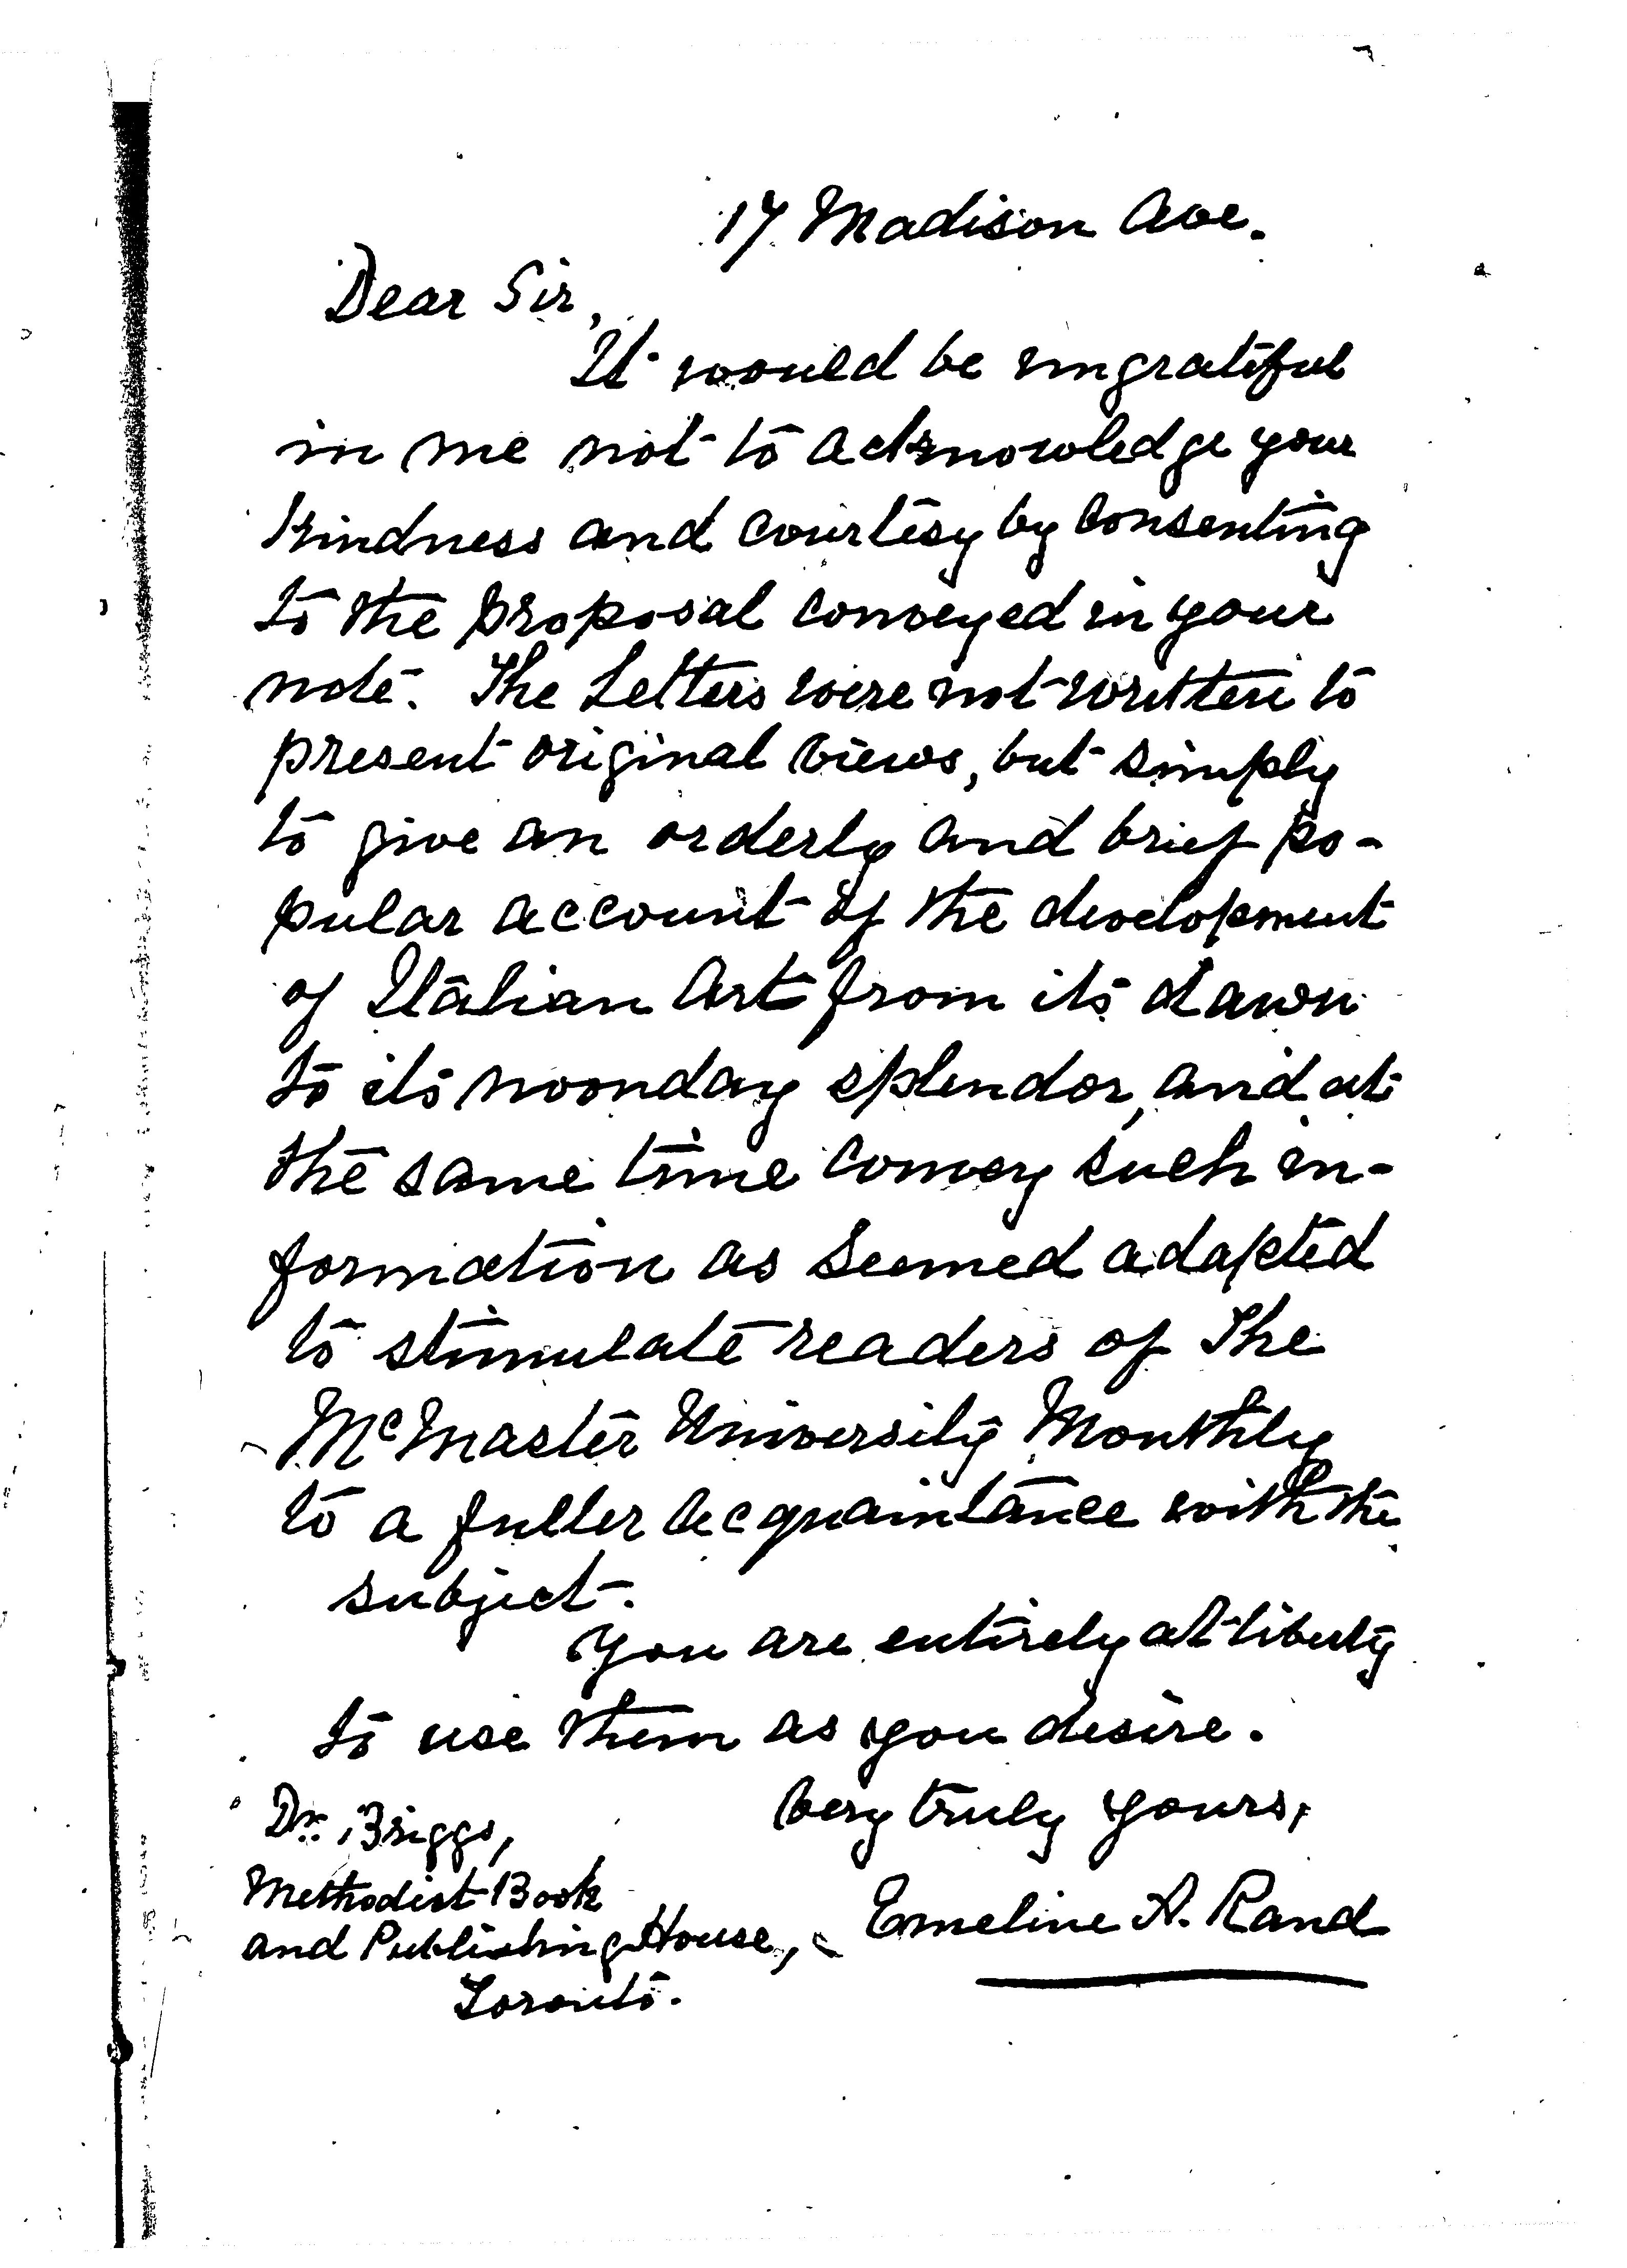 17 Madison Ave.
Dear Sir,
It would be ungrateful
in me not to acknowledge your
kindness and courtesy by consenting
to the proposal conveyed in your
note. The Letters were not written to
present original views, but simply
to give an orderly and brief po-
pular account of the development
of Italian Art from its dawn
to its noonday splendor, and at
the same time convey such in-
formation as seemed adapted
to stimulate readers of The
McMaster University Monthly
to a fuller acquaintance with the
subject.
You are entirely at liberty
to use them as you desire.
Very truly yours,
Emeline A. Rand
Dr. Briggs,
Methodist Book
and Publishing House,
Toronto.